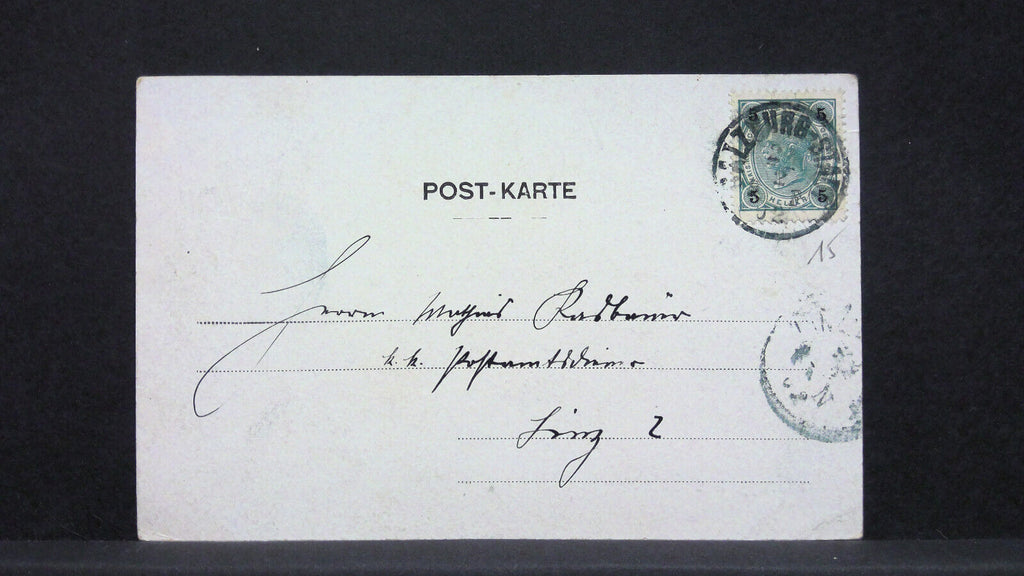 POST-KARTE
5 5
5 5
HELLER
SALZBURG-STADT
02
15
Herrn Mathias
k. k. Postamtsdiener
Linz 2